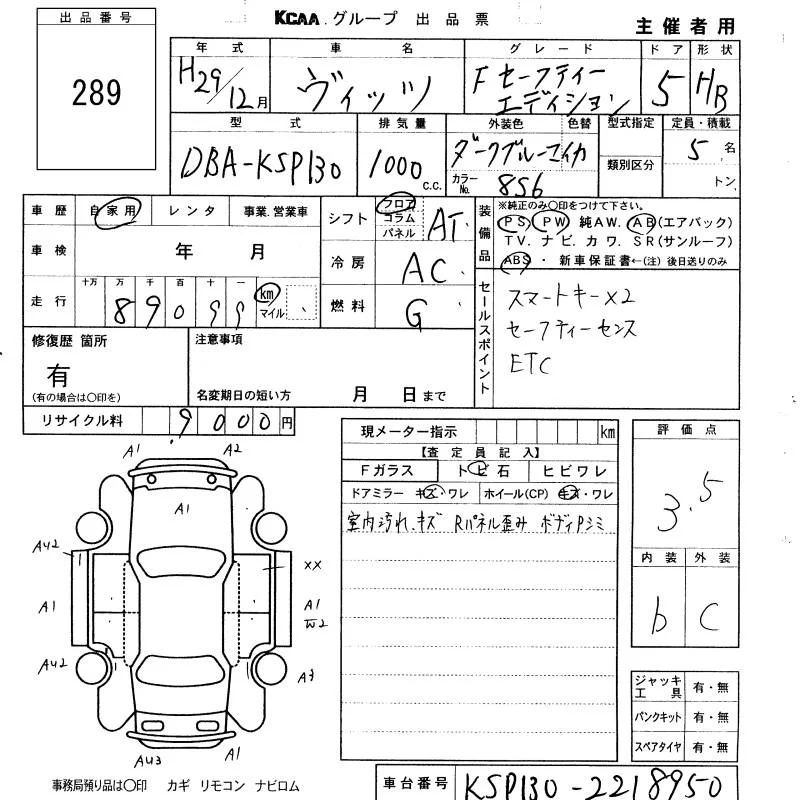 出品番号
289
KCAA.グループ 出品票
主催者用
年式 車名 グレード ドア 形状
H29/12月 ヴィッツ Fセーフティーエディション 5 HB
型式 排気量 外装色 色替 型式指定 定員・積載
DBA-KSP130 1000 C.C. ダークブルーマイカ 5名
カラーNo. 856 類別区分 トン
車歴 自家用 レンタ 事業.営業車
車検 年 月
走行 十万 万 千 百 十 一
89099 km マイル
シフト フロア コラム パネル AT
冷房 AC
燃料 G
装備品
※純正のみ○印をつけて下さい。
PS PW 純AW. AB(エアバック)
TV. ナビ. カワ. SR(サンルーフ)
ABS・ 新車保証書←(注)後日送りのみ
セールスポイント
スマートキー×2
セーフティーセンス
ETC
修復歴 箇所
有
(有の場合は○印を)
注意事項
名変期日の短い方 月 日まで
リサイクル料 9000円
現メーター指示 km
【査定員記入】
Fガラス トビ石 ヒビワレ
ドアミラー キズ・ワレ ホイール(CP) キズ・ワレ
室内汚れ、キズ Rパネル歪み ボディPシミ
評価点
3.5
内装 外装
b C
A1 A2
A1
AU2 XX
A1 A1
W2
AU2 A3
AU3 A1
ジャッキ工具 有・無
パンクキット 有・無
スペアタイヤ 有・無
事務局預り品は○印 カギ リモコン ナビロム
車台番号 KSP130-2218950